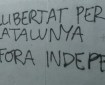 LLIBERTAT PER
CATALUNYA
FORA INDEPE